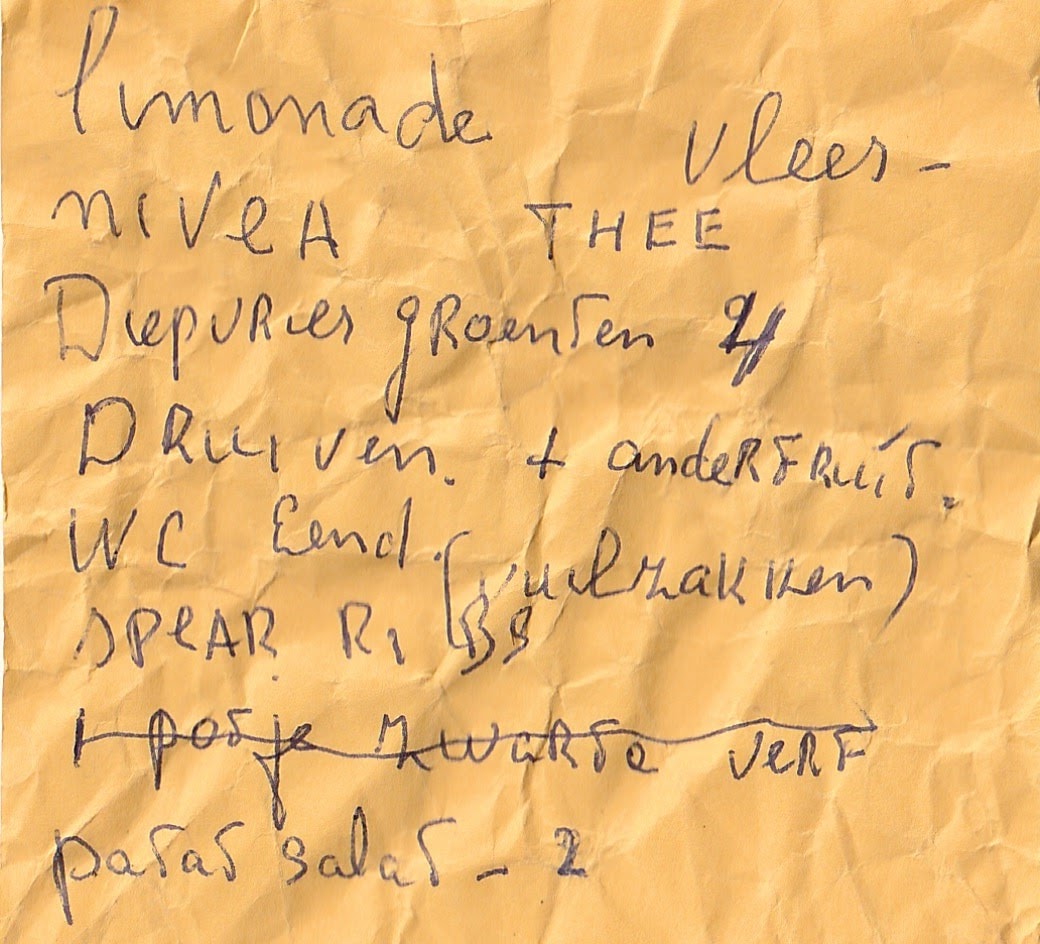 limonade vlees -
nivea THEE
Diepvries groenten 4
DRuiven. + anderfruit.
WC Eend. (vuilzakken)
speAR RiBBS
1 potje zwarte verf
patat salat - 2